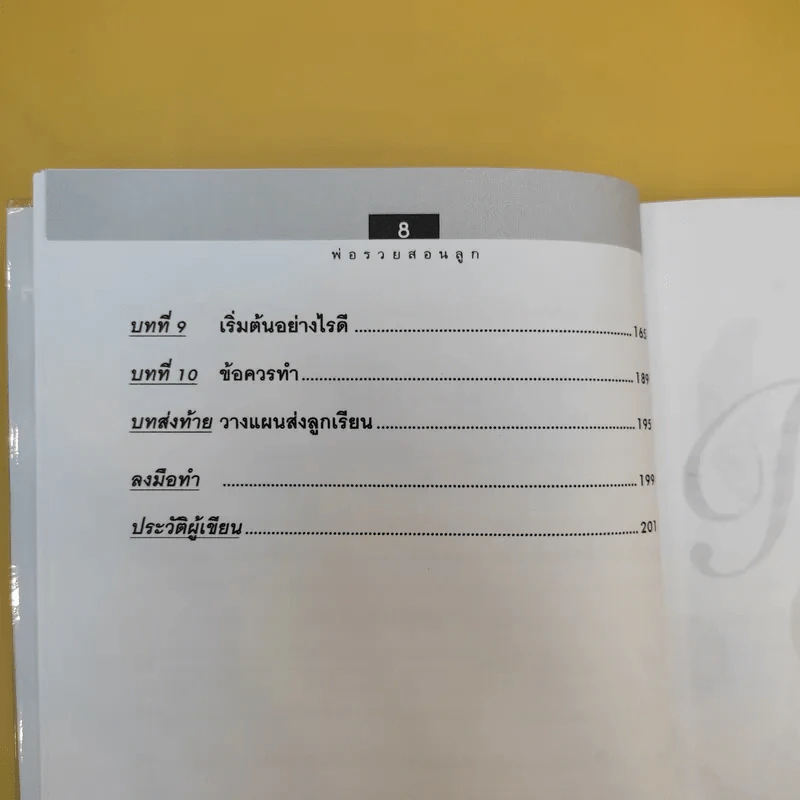 8
พ่อรวยสอนลูก
บทที่ 9 เริ่มต้นอย่างไรดี ........................................ 165
บทที่ 10 ข้อควรทำ ........................................ 189
บทส่งท้าย วางแผนส่งลูกเรียน ........................................ 195
ลงมือทำ ........................................ 199
ประวัติผู้เขียน ........................................ 201